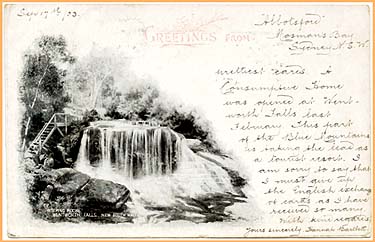 Sept 17th/03.
"Abbotsford"
Mosman's Bay
Sydney N.S.W.
GREETINGS FROM
prettiest cares. A
Consumptive Home
was opened at Went-
worth Falls last
February. This part
of the Blue Mountains
is taking the lead as
a tourist resort. I
am sorry to say that
I must give up
the English exchange
of cards as I have
receive so many.
With kind regards,
Yours sincerely, Hannah Bartlett
WENTWORTH FALLS, NEW SOUTH WALES